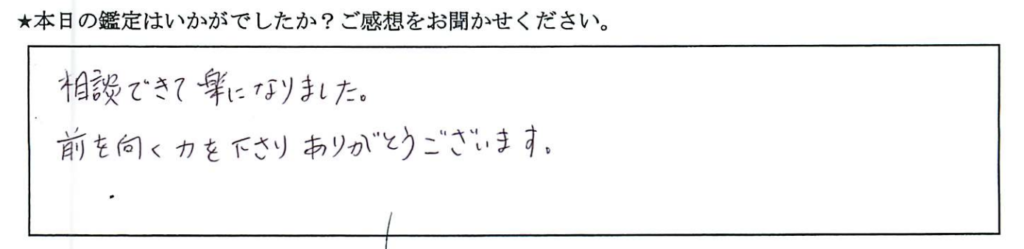 ★本日の鑑定はいかがでしたか？ご感想をお聞かせください。
相談できて楽になりました。
前を向く力を下さりありがとうございます。